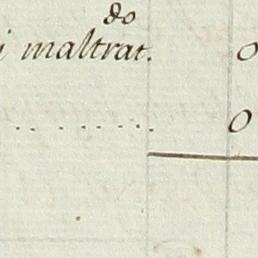 i maltrat.do 0
........ 0